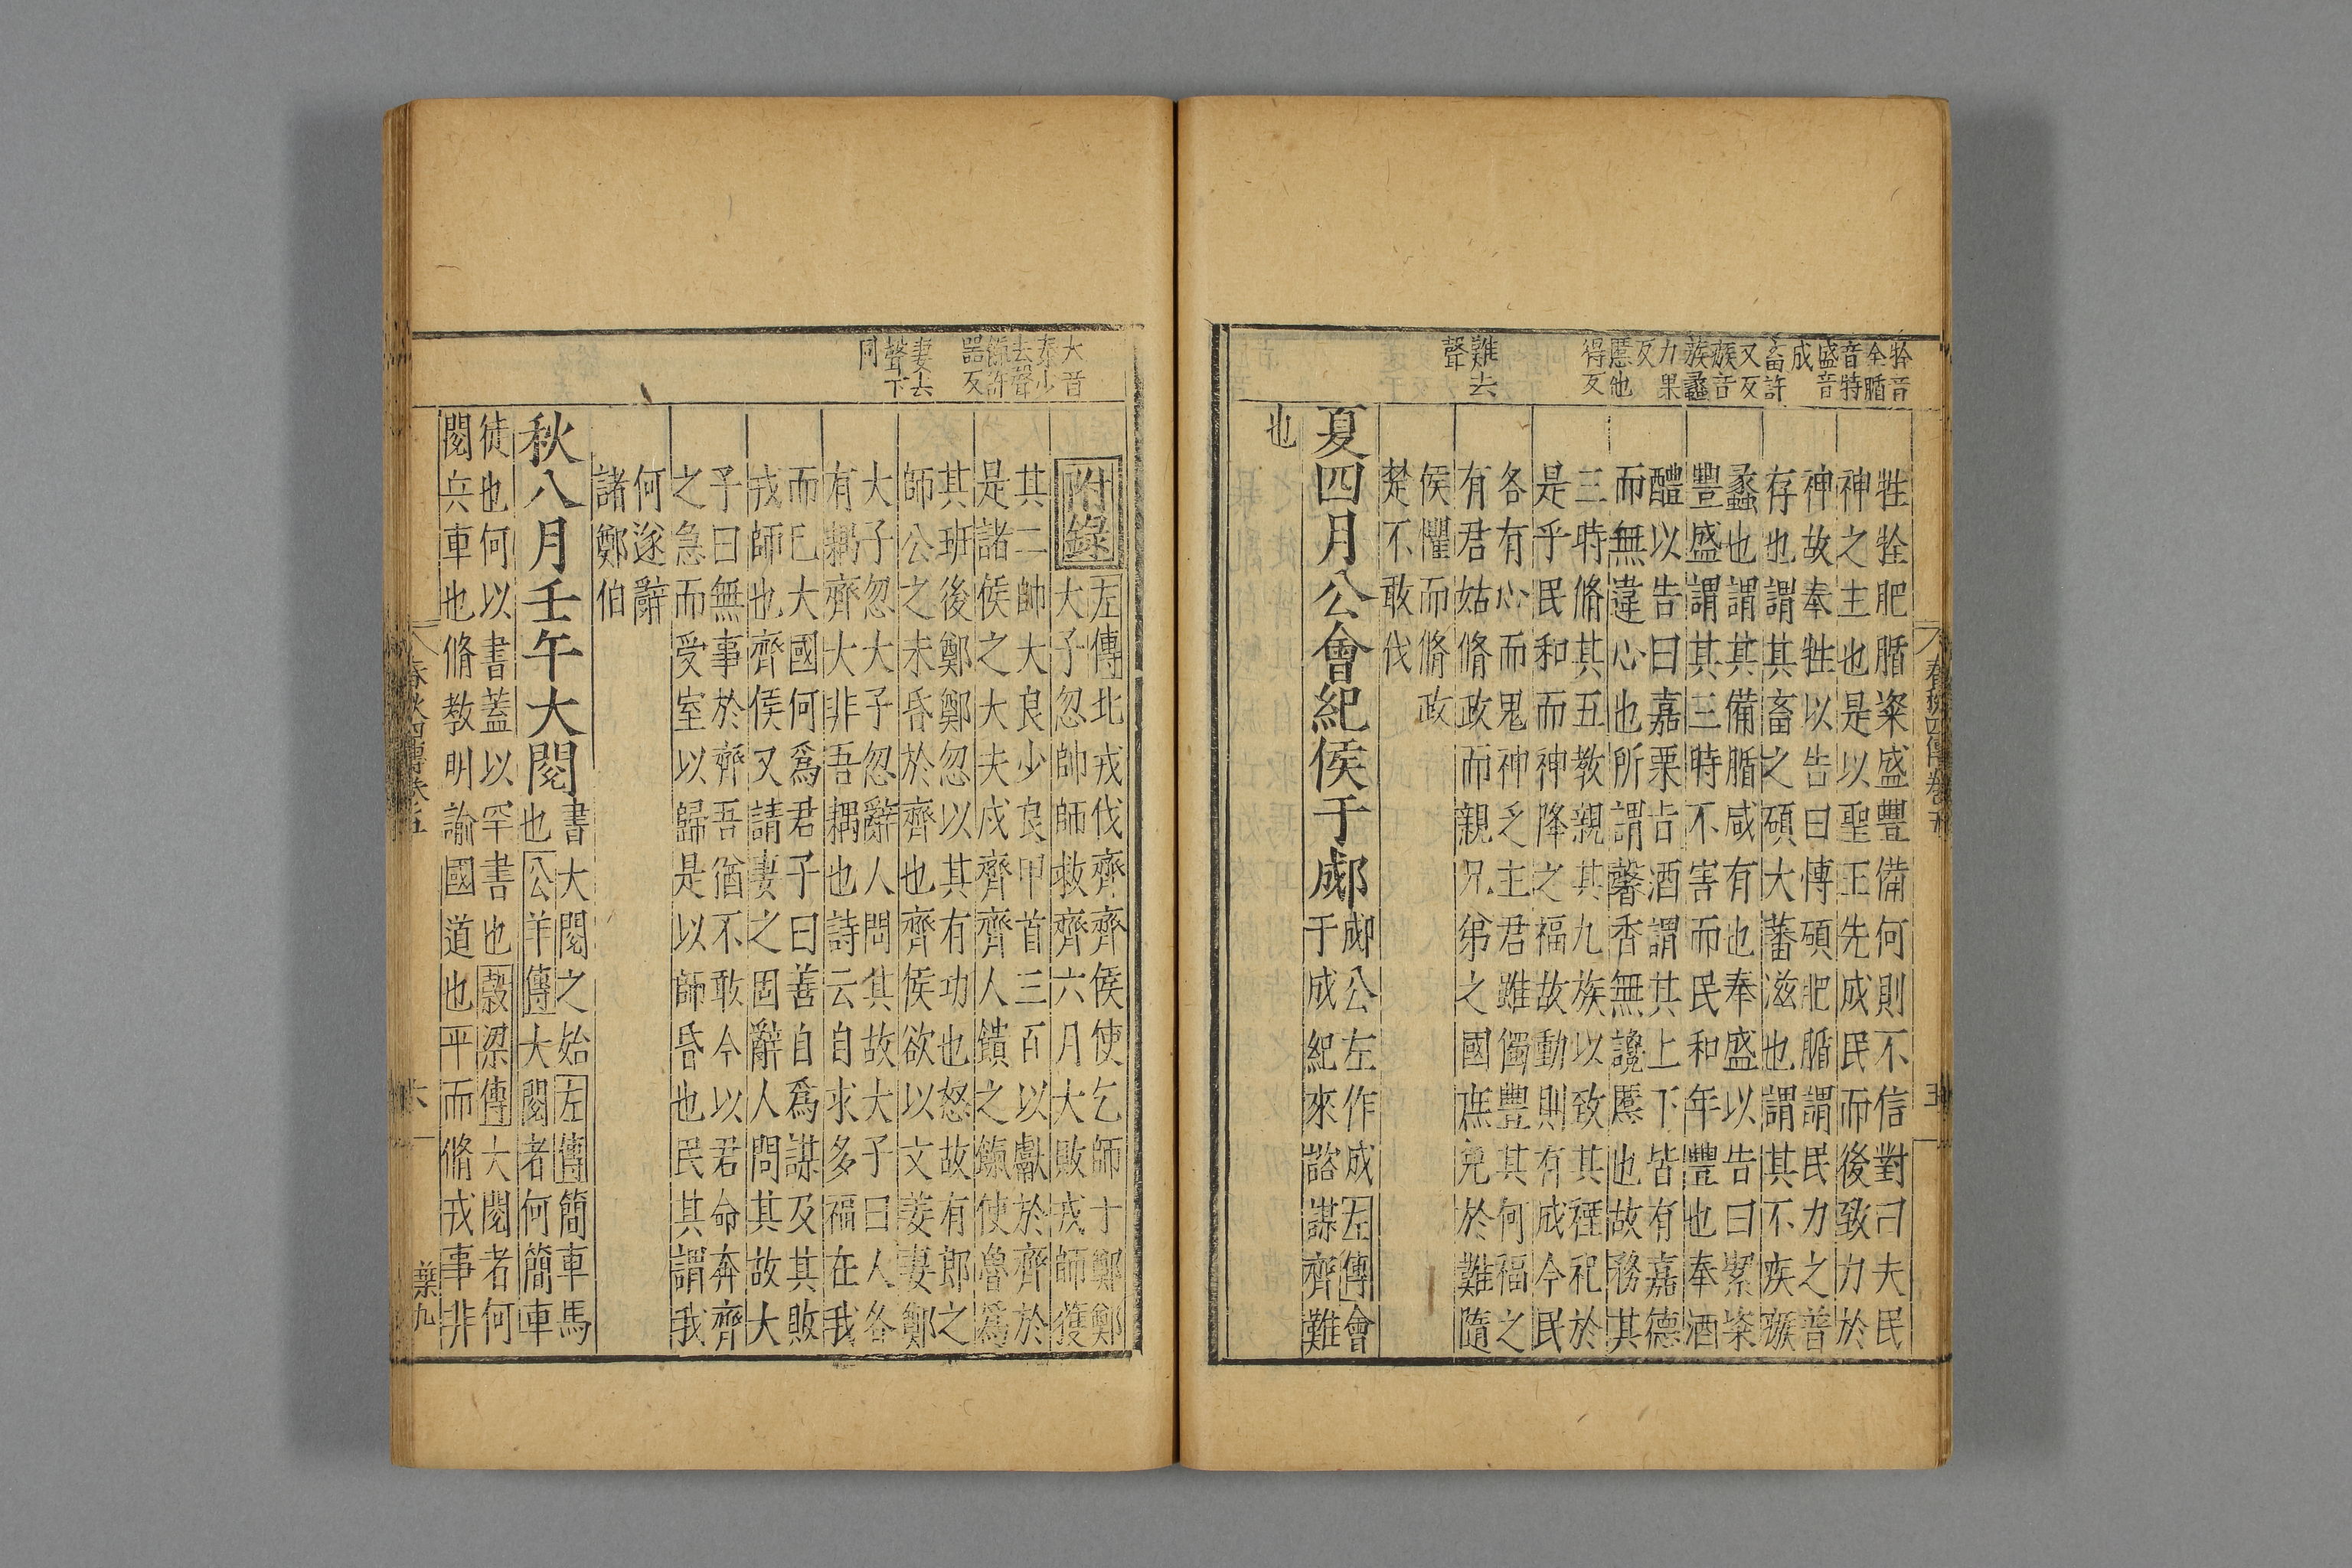 牷音
全腯
音特
盛音
成
畜許
又反
瘯音
蔟蠡
力果
反
慝他
得反
難去
聲
牲牷肥腯粢盛豐備何則不信對曰夫民
神之主也是以聖王先成民而後致力於
神故奉牲以告曰博碩肥腯謂民力之普
存也謂其畜之碩大蕃滋也謂其不疾瘯
蠡也謂其備腯咸有也奉盛以告曰絜粢
豐盛謂其三時不害而民和年豐也奉酒
醴以告曰嘉栗旨酒謂其上下皆有嘉德
而無違心也所謂馨香無讒慝也故務其
三時脩其五教親其九族以致其禋祀於
是乎民和而神降之福故動則有成今民
各有心而鬼神乏主君雖獨豐其何福之
有君姑脩政而親兄弟之國庶免於難隨
侯懼而脩政
楚不敢伐
夏四月公會紀侯于郕
郕公左作成左傳會
于成紀來諮謀齊難
也
春秋四傳卷五
五
大音
泰少
去聲
餼許
器反
妻去
聲下
同
附錄
左傳北戎伐齊齊侯使乞師于鄭鄭
大子忽帥師救齊六月大敗戎師獲
其二帥大良少良甲首三百以獻於齊於
是諸侯之大夫戍齊齊人饋之餼使魯爲
其班後鄭鄭忽以其有功也怒故有郎之
師公之未昏於齊也齊侯欲以文姜妻鄭
大子忽大子忽辭人問其故大子曰人各
有耦齊大非吾耦也詩云自求多福在我
而已大國何爲君子曰善自爲謀及其敗
戎師也齊侯又請妻之固辭人問其故大
子曰無事於齊吾猶不敢今以君命奔齊
之急而受室以歸是以師昏也民其謂我
何遂辭
諸鄭伯
秋八月壬午大閱
書大閱之始左傳簡車馬
也公羊傳大閱者何簡車
徒也何以書蓋以罕書也穀梁傳大閱者何
閱兵車也脩教明諭國道也平而脩戎事非
春秋四傳卷五
六
葉九